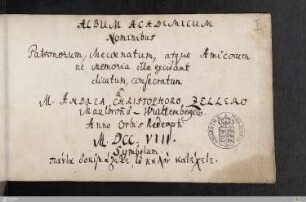 ALBUM ACADEMICUM
Nominibus
Patronorum, Mecænatum, atque Amicorum
ne memoria illis excidant
dicatum, consecratum
à
M. ANDREA CHRISTOPHORO ZELLERO
Maulbronâ-Wirttembergico
Anno Orbis Redempti
M. DCC. VIII.
Symbolum
πάντα δοκιμάζετε τὸ καλὸν κατέχετε.